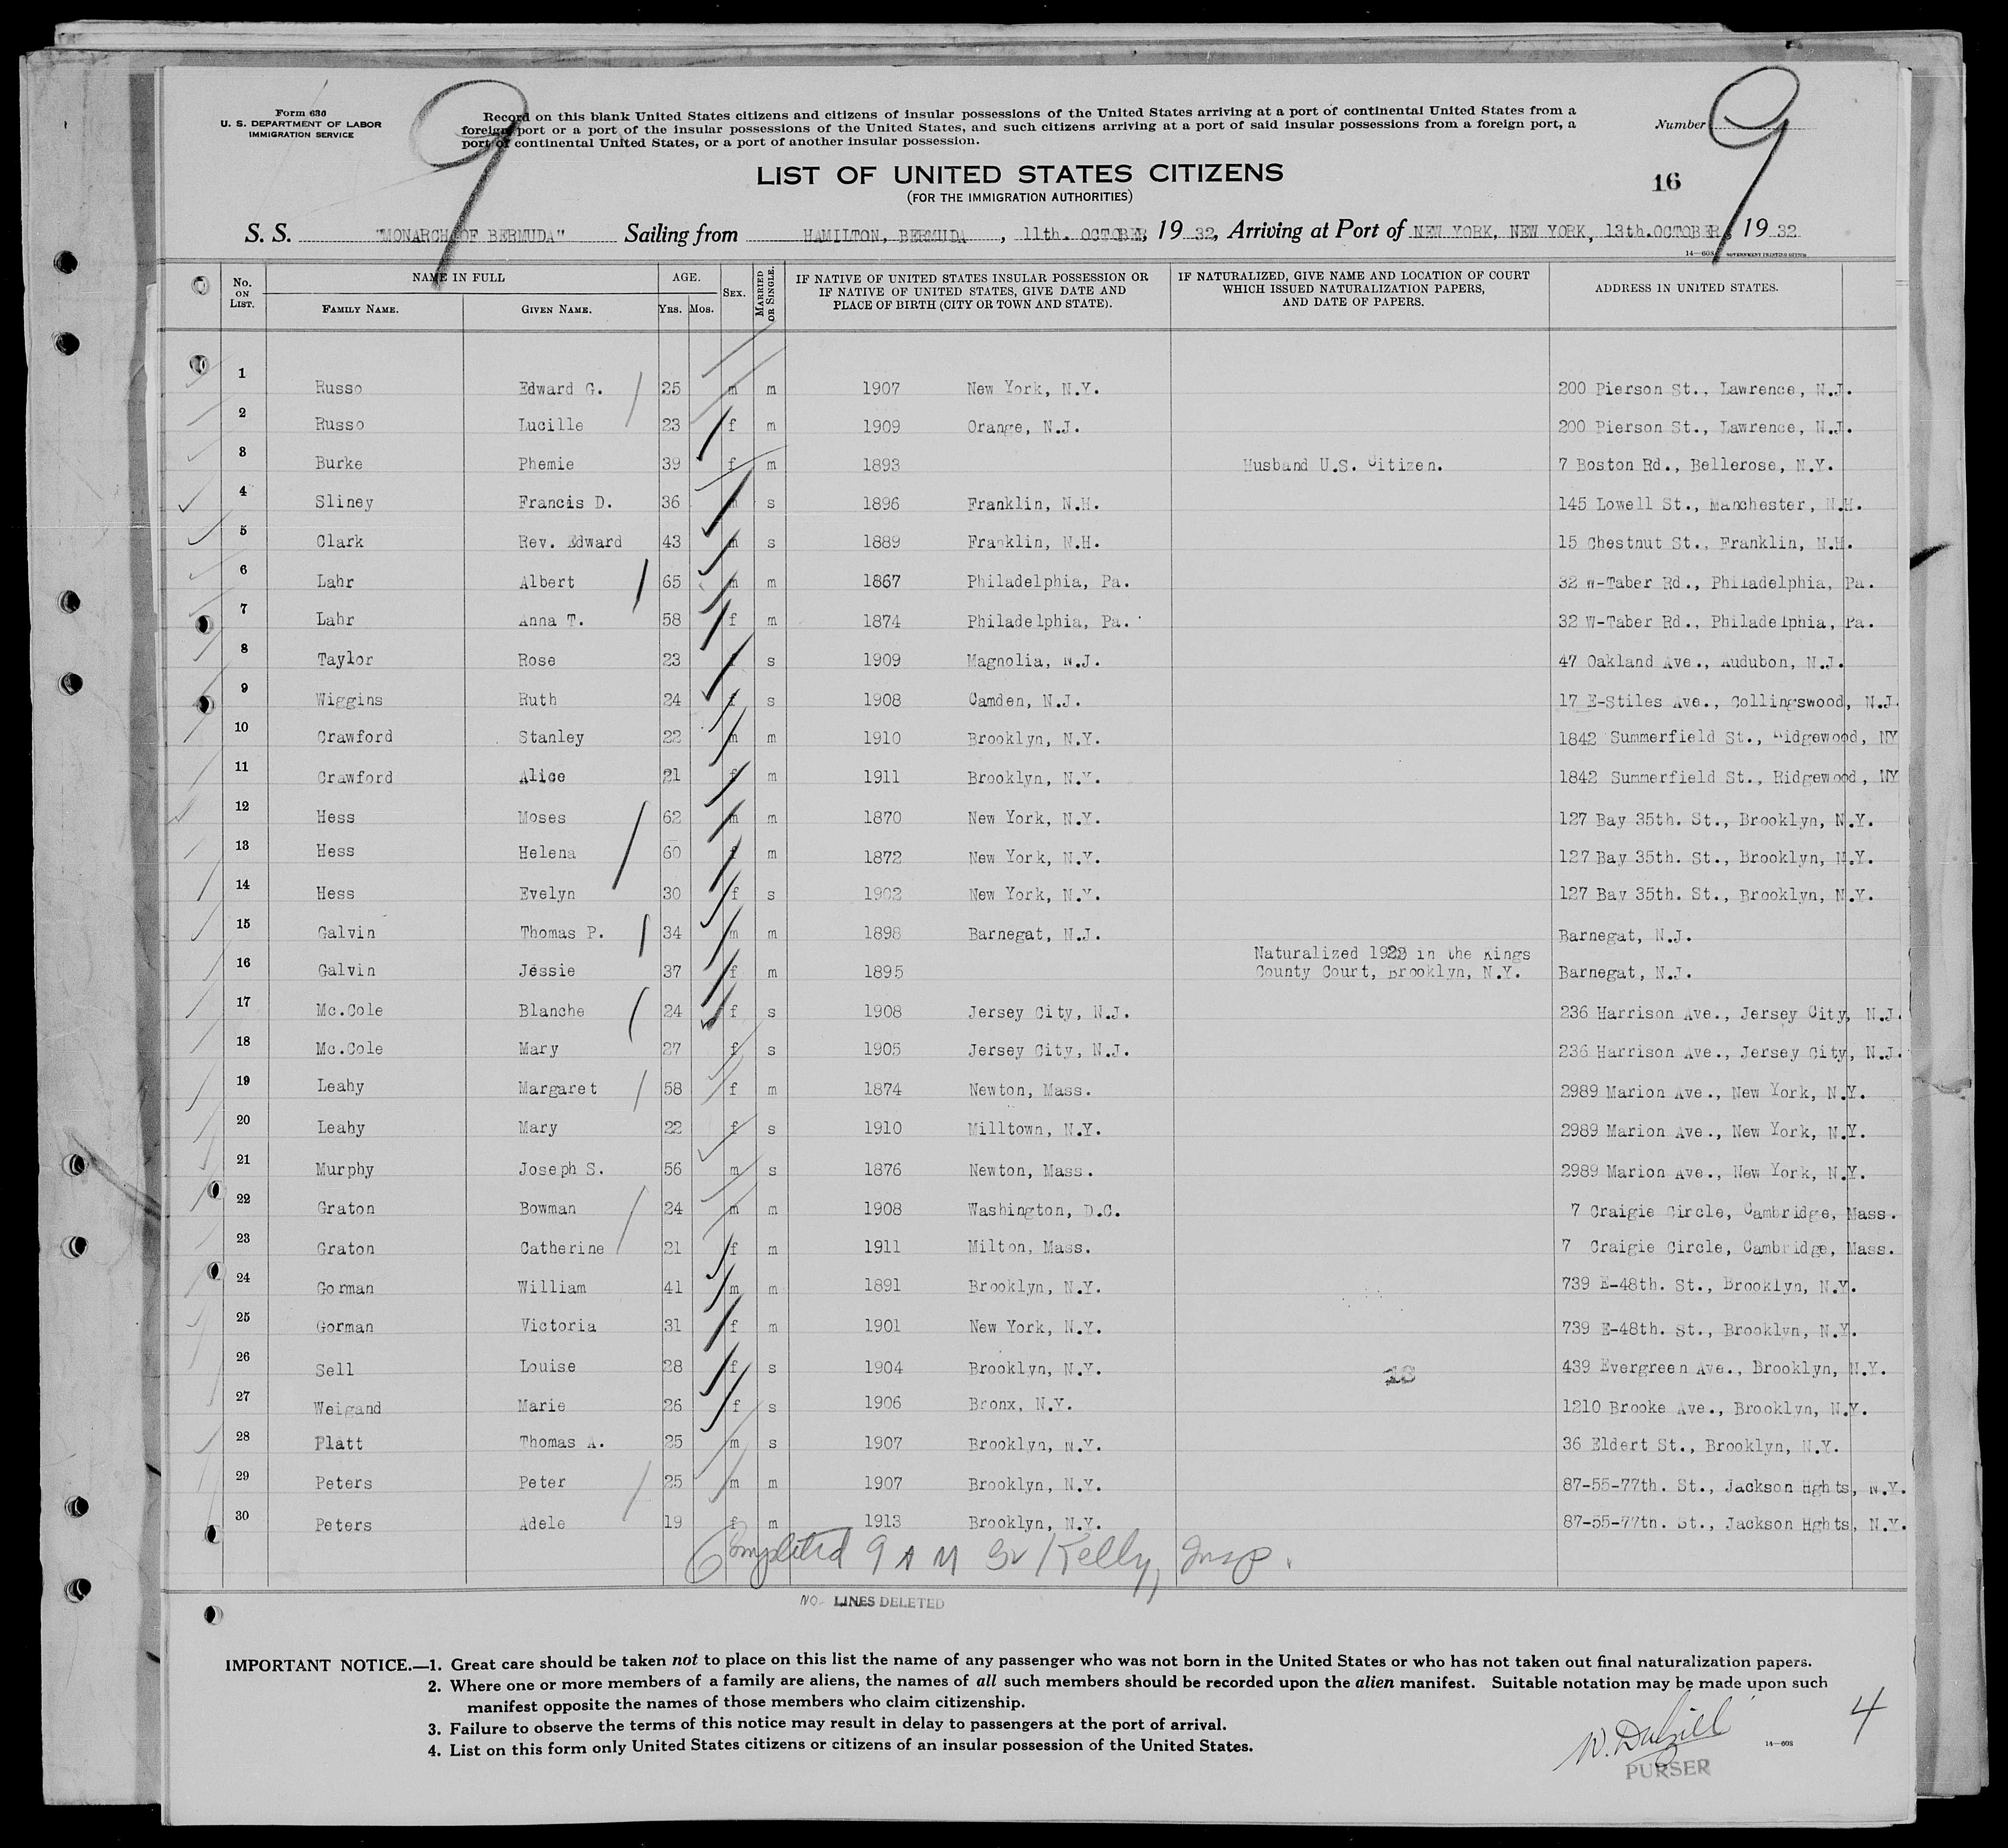 Form 630
U. S. DEPARTMENT OF LABOR
IMMIGRATION SERVICE
9
Record on this blank United States citizens and citizens of insular possessions of the United States arriving at a port of continental United States from a
foreign port or a port of the insular possessions of the United States, and such citizens arriving at a port of said insular possessions from a foreign port, a
port of continental United States, or a port of another insular possession.
Number 9
LIST OF UNITED STATES CITIZENS
(FOR THE IMMIGRATION AUTHORITIES)
16
S. S. "MONARCH OF BERMUDA" Sailing from HAMILTON, BERMUDA , 11th. OCTOBER, 19 32, Arriving at Port of NEW YORK, NEW YORK, 13th.OCTOBER, 19 32
14—608 GOVERNMENT PRINTING OFFICE
No. ON LIST. NAME IN FULL FAMILY NAME. GIVEN NAME. AGE. YRS. MOS. SEX. MARRIED OR SINGLE. IF NATIVE OF UNITED STATES INSULAR POSSESSION OR IF NATIVE OF UNITED STATES, GIVE DATE AND PLACE OF BIRTH (CITY OR TOWN AND STATE). IF NATURALIZED, GIVE NAME AND LOCATION OF COURT WHICH ISSUED NATURALIZATION PAPERS, AND DATE OF PAPERS. ADDRESS IN UNITED STATES.
1 Russo Edward G. 25 m m 1907 New York, N.Y. 200 Pierson St., Lawrence, N.J.
2 Russo Lucille 23 f m 1909 Orange, N.J. 200 Pierson St., Lawrence, N.J.
3 Burke Phemie 39 f m 1893 Husband U.S. Citizen. 7 Boston Rd., Bellerose, N.Y.
4 Sliney Francis D. 36 m s 1896 Franklin, N.H. 145 Lowell St., Manchester, N.H.
5 Clark Rev. Edward 43 m s 1889 Franklin, N.H. 15 Chestnut St., Franklin, N.H.
6 Lahr Albert 65 m m 1867 Philadelphia, Pa. 32 W-Taber Rd., Philadelphia, Pa.
7 Lahr Anna T. 58 f m 1874 Philadelphia, Pa. 32 W-Taber Rd., Philadelphia, Pa.
8 Taylor Rose 23 f s 1909 Magnolia, N.J. 47 Oakland Ave., Audubon, N.J.
9 Wiggins Ruth 24 f s 1908 Camden, N.J. 17 E-Stiles Ave., Collingswood, N.J.
10 Crawford Stanley 22 m m 1910 Brooklyn, N.Y. 1842 Summerfield St., Ridgewood, NY
11 Crawford Alice 21 f m 1911 Brooklyn, N.Y. 1842 Summerfield St., Ridgewood, NY
12 Hess Moses 62 m m 1870 New York, N.Y. 127 Bay 35th. St., Brooklyn, N.Y.
13 Hess Helena 60 f m 1872 New York, N.Y. 127 Bay 35th. St., Brooklyn, N.Y.
14 Hess Evelyn 30 f s 1902 New York, N.Y. 127 Bay 35th. St., Brooklyn, N.Y.
15 Galvin Thomas P. 34 m m 1898 Barnegat, N.J. Barnegat, N.J.
Naturalized in the Kings
16 Galvin Jessie 37 f m 1895 County Court, Brooklyn, N.Y. Barnegat, N.J.
17 Mc.Cole Blanche 24 f s 1908 Jersey City, N.J. 236 Harrison Ave., Jersey City, N.J.
18 Mc.Cole Mary 27 f s 1905 Jersey City, N.J. 236 Harrison Ave., Jersey City, N.J.
19 Leahy Margaret 58 f m 1874 Newton, Mass. 2989 Marion Ave., New York, N.Y.
20 Leahy Mary 22 f s 1910 Milltown, N.Y. 2989 Marion Ave., New York, N.Y.
21 Murphy Joseph S. 56 m s 1876 Newton, Mass. 2989 Marion Ave., New York, N.Y.
22 Graton Bowman 24 m m 1908 Washington, D.C. 7 Craigie Circle, Cambridge, Mass.
23 Graton Catherine 21 f m 1911 Milton, Mass. 7 Craigie Circle, Cambridge, Mass.
24 Gorman William 41 m m 1891 Brooklyn, N.Y. 739 E-48th. St., Brooklyn, N.Y.
25 Gorman Victoria 31 f m 1901 New York, N.Y. 739 E-48th. St., Brooklyn, N.Y.
26 Sell Louise 28 f s 1904 Brooklyn, N.Y. 16 439 Evergreen Ave., Brooklyn, N.Y.
27 Weigand Marie 26 f s 1906 Bronx, N.Y. 1210 Brooke Ave., Brooklyn, N.Y.
28 Platt Thomas A. 25 m s 1907 Brooklyn, N.Y. 36 Eldert St., Brooklyn, N.Y.
29 Peters Peter 25 m m 1907 Brooklyn, N.Y. 87-55-77th. St., Jackson Hghts, N.Y.
30 Peters Adele 19 f m 1913 Brooklyn, N.Y. 87-55-77th. St., Jackson Hghts, N.Y.
Completed 9 A M Kelly, Insp.
NO- LINES DELETED
IMPORTANT NOTICE.—1. Great care should be taken not to place on this list the name of any passenger who was not born in the United States or who has not taken out final naturalization papers.
2. Where one or more members of a family are aliens, the names of all such members should be recorded upon the alien manifest. Suitable notation may be made upon such
manifest opposite the names of those members who claim citizenship.
3. Failure to observe the terms of this notice may result in delay to passengers at the port of arrival.
4. List on this form only United States citizens or citizens of an insular possession of the United States.
W. Dalziell
PURSER
14—608
4